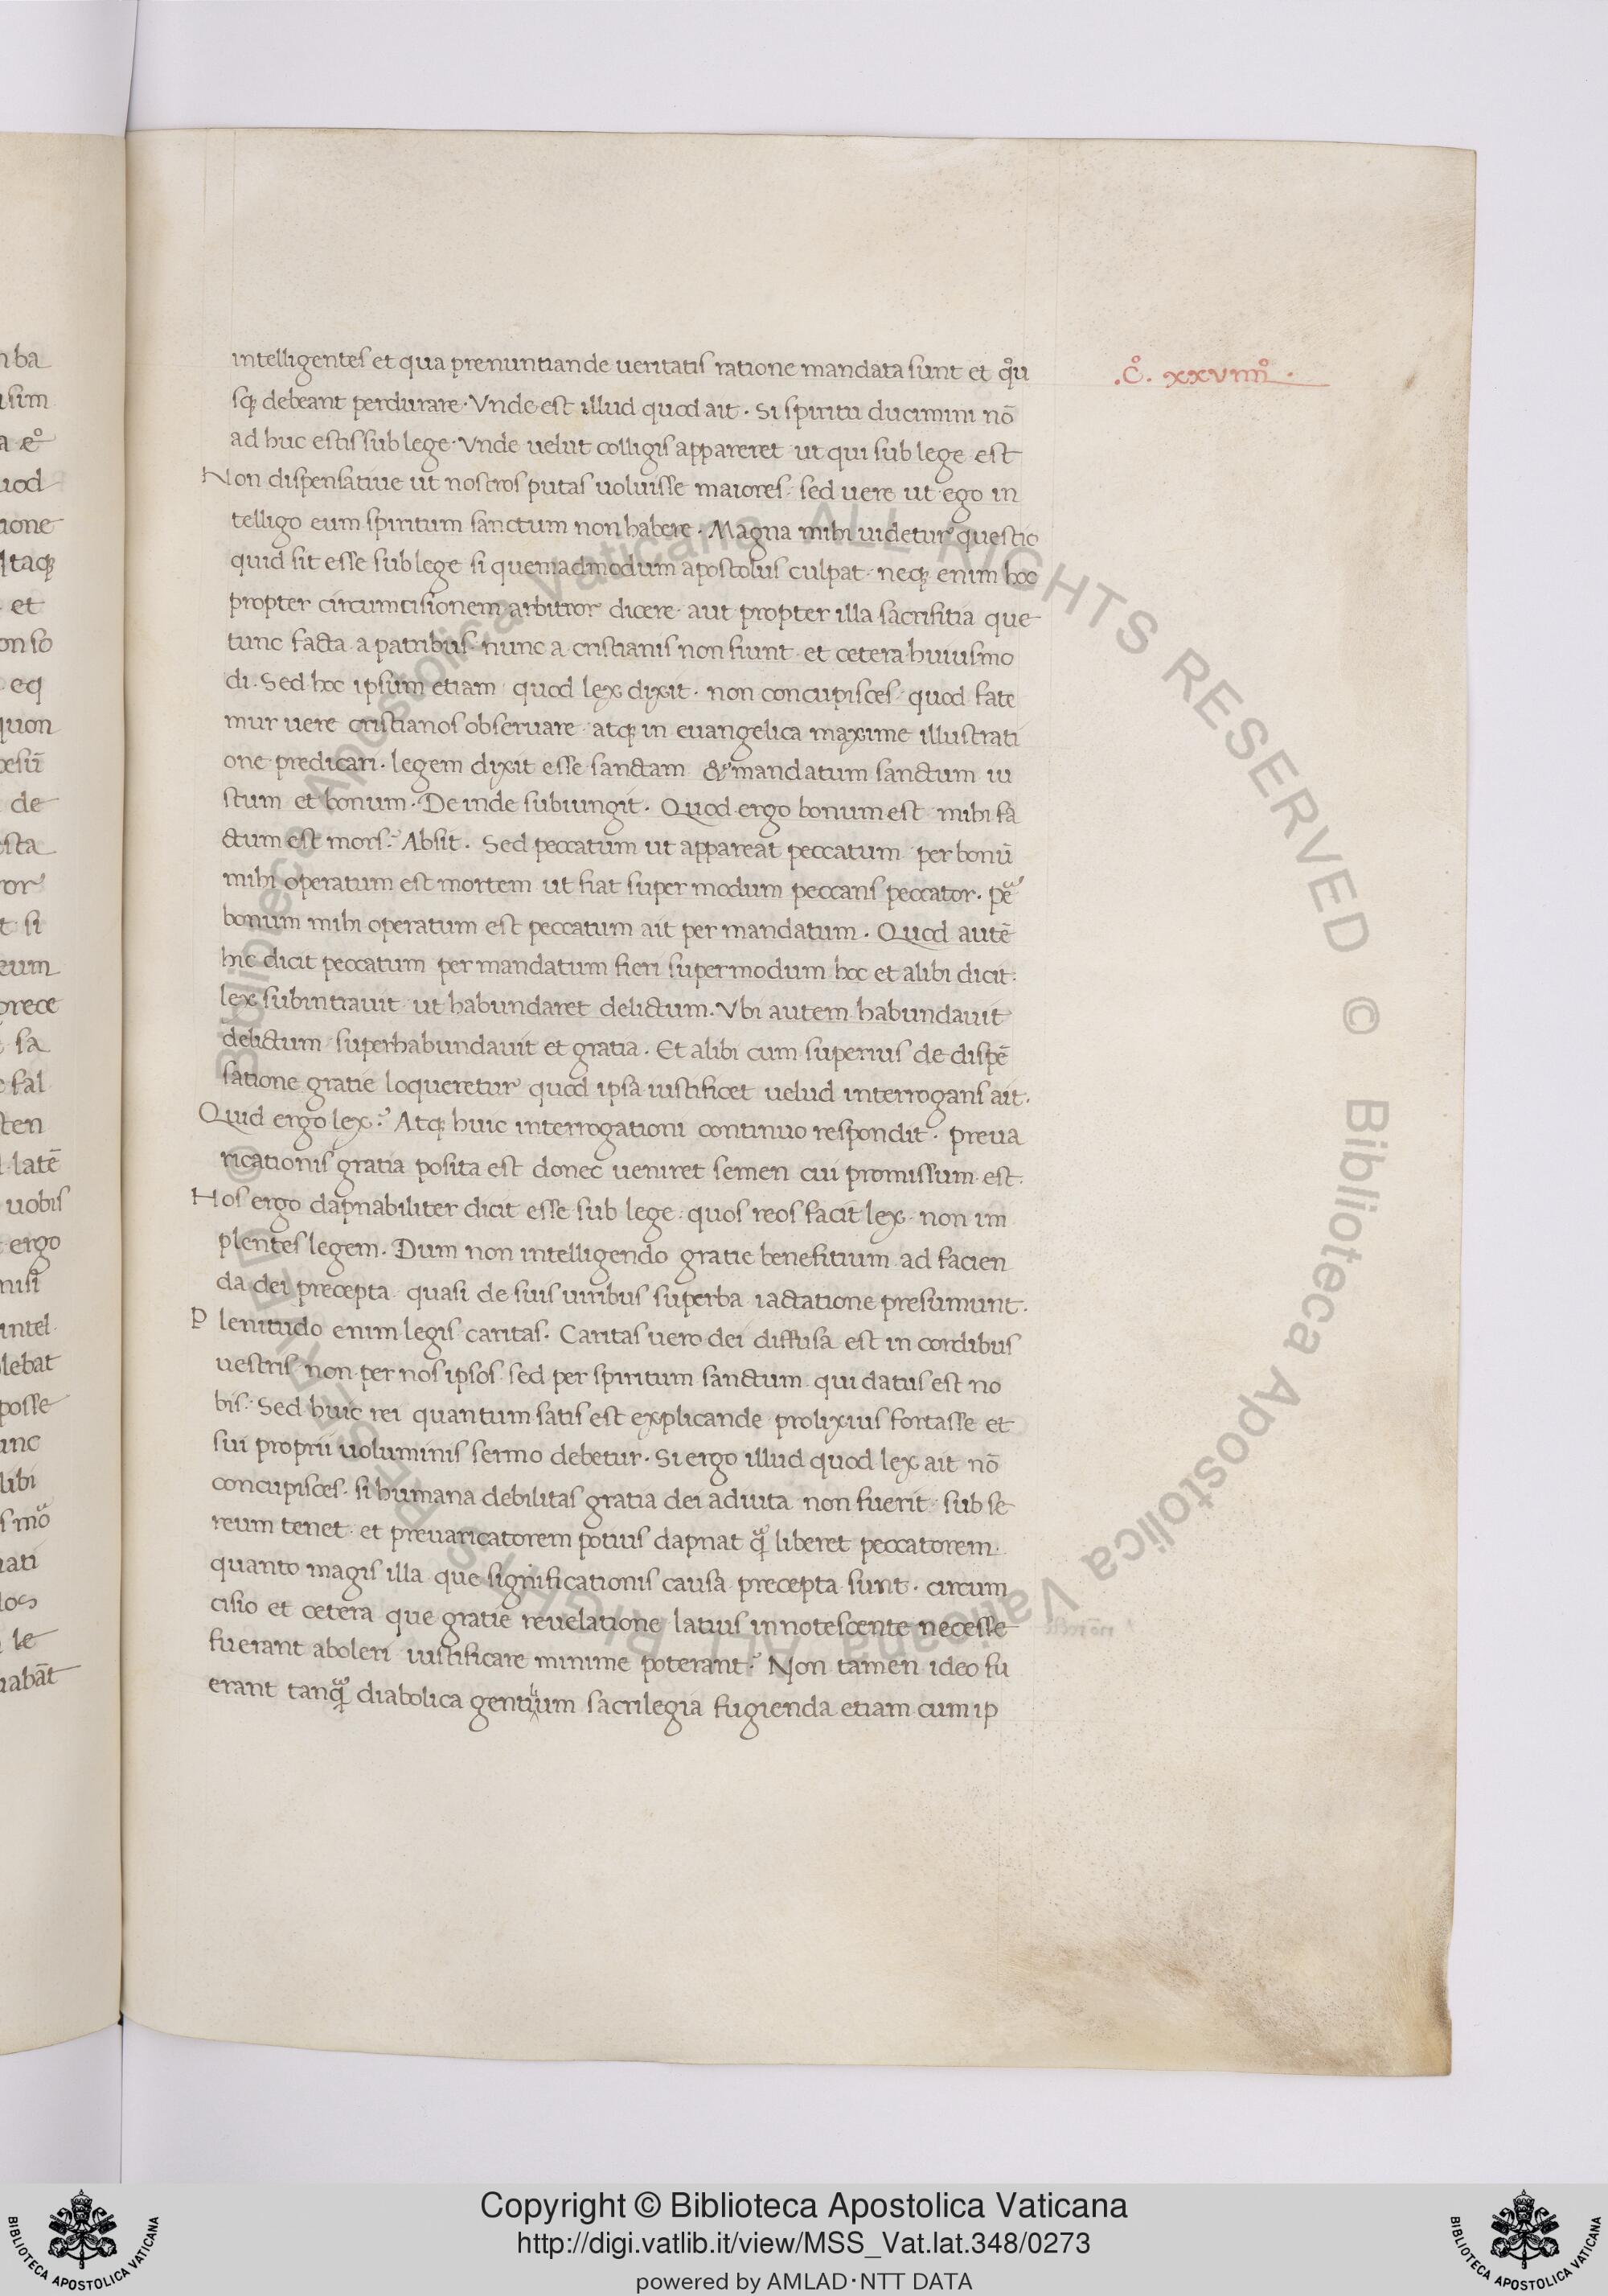 intelligentes et qua prenuntiande ueritatis ratione mandata sunt et qͦu
sqꝫ debeant perdurare · Vnde est illud quod ait · Si spiritu ducimini nō
ad huc estis sub lege · Vnde uelut colligis appareret ut qui sub lege est
Non dispensatiue ut nostros putas uoluisse maiores · sed uere ut ego in
telligo eum spiritum sanctum non habere · Magna mihi uidetur questio
quid sit esse sub lege si quemadmodum apostolus culpat · neqꝫ enim hoc
propter circumcisionem arbitror dicere · aut propter illa sacrifitia que
tunc facta a patribus · nunc a cristianis non fiunt · et cetera huiusmo
di · Sed hoc ipsum etiam quod lex dixit · non concupisces · quod fate
mur uere cristianos obseruare atqꝫ in euangelica maxime illustrati
one predicari · legem dixit esse sanctam & mandatum sanctum iu
stum et bonum · De inde subiungit · Quod ergo bonum est mihi fa
ctum est mors? Absit · Sed peccatum ut appareat peccatum per bonū
mihi operatum est mortem ut fiat super modum peccans peccator ·
bonum mihi operatum est peccatum ait per mandatum · Quod autē
hic dicit peccatum per mandatum fieri supermodum hoc et alibi dicit ·
lex subintrauit ut habundaret delictum · Vbi autem habundauit
delictum superhabundauit et gratia · Et alibi cum superius de dispē
satione gratie loqueretur quod ipsa iustificet uelud interrogans ait ·
Quid ergo lex? Atqꝫ huic interrogationi continuo respondit · preua
ricationis gratia posita est donec ueniret semen cui promissum est ·
Hos ergo dapnabiliter dicit esse sub lege · quos reos facit lex · non im
plentes legem · Dum non intelligendo gratie benefitium ad facien
da dei precepta quasi de suis uiribus superba iactatione presumunt ·
Plenitudo enim legis caritas · Caritas uero dei diffusa est in cordibus
uestris · non per nos ipsos · sed per spiritum sanctum qui datus est no
bis · Sed huic rei quantum satis est explicande prolixius fortasse et
sui proprii uoluminis sermo debetur · Si ergo illud quod lex ait nō
concupisces · si humana debilitas gratia dei adiuta non fuerit · sub se
reum tenet · et preuaricatorem potius dapnat qᷓ liberet peccatorem ·
quanto magis illa que significationis causa precepta sunt · circum
cisio et cetera que gratie reuelatione latius innotescente necesse
fuerant aboleri iustificare minime poterant? Non tamen ideo fu
erant tanqᷓ diabolica gentium sacrilegia fugienda etiam cum ip
.cͦ. xxviiiiͦ.
Copyright © Biblioteca Apostolica Vaticana
http://digi.vatlib.it/view/MSS_Vat.lat.348/0273
powered by AMLAD·NTT DATA
BIBLIOTECA APOSTOLICA VATICANA
BIBLIOTECA APOSTOLICA VATICANA
© Biblioteca Apostolica Vaticana ALL RIGHTS RESERVED © Biblioteca Apostolica Vaticana ALL RIGHTS RESERVED